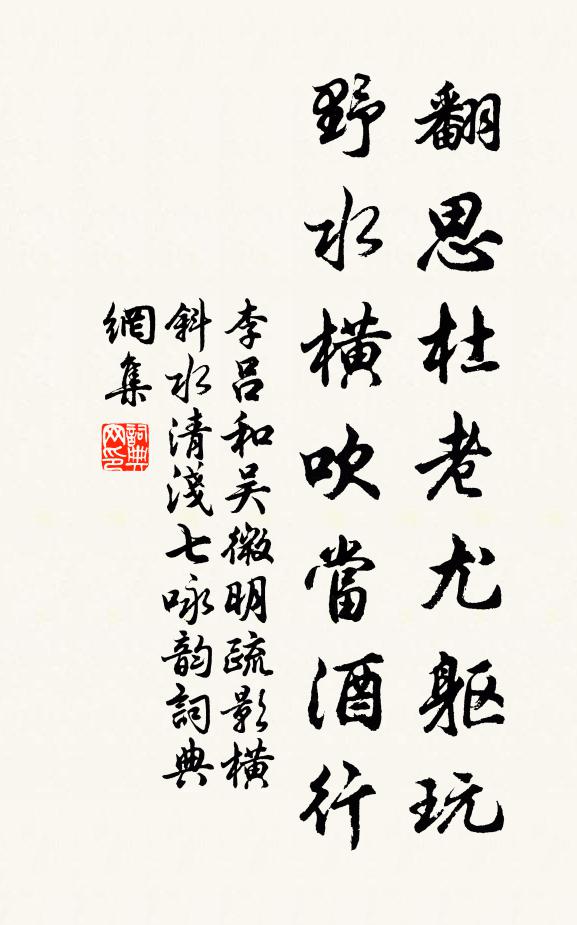 翻思杜老尤軀玩
野水橫吹當酒行
李呂和吴微明疏影橫
斜水清淺七咏韵詞典
網集
詞典
网印